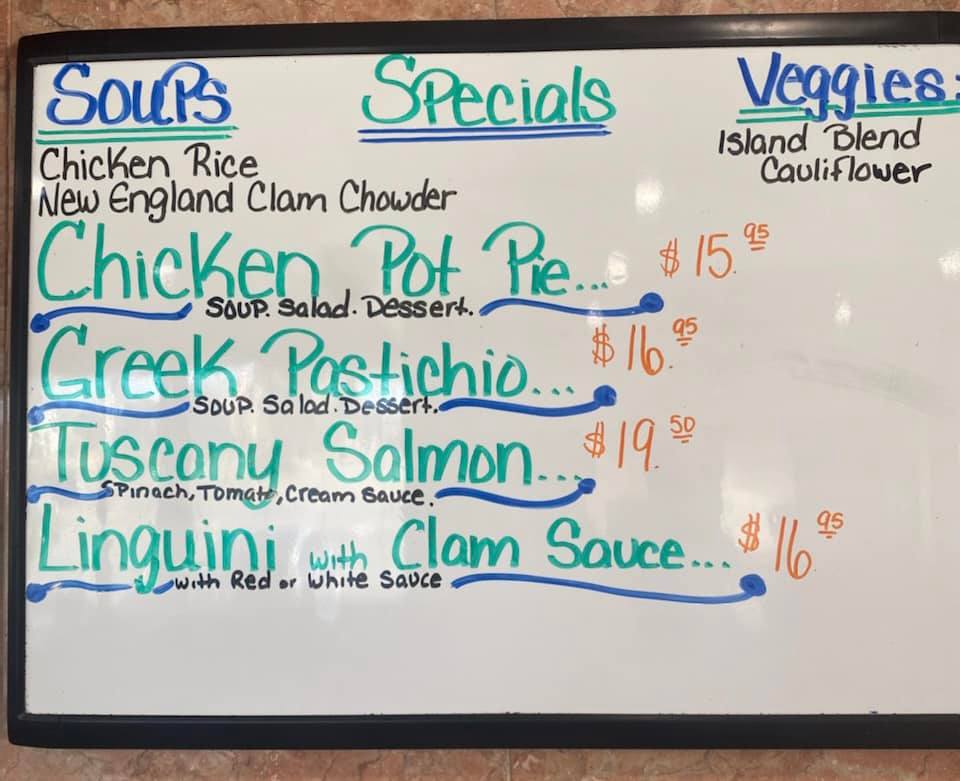 Soups Specials Veggies:
Chicken Rice
New England Clam Chowder
Island Blend
Cauliflower
Chicken Pot Pie... $15.95
Soup. Salad. Dessert.
Greek Pastichio... $16.95
Soup. Salad. Dessert.
Tuscany Salmon... $19.50
Spinach, Tomato, Cream Sauce.
Linguini with Clam Sauce... $16.95
with Red or White Sauce